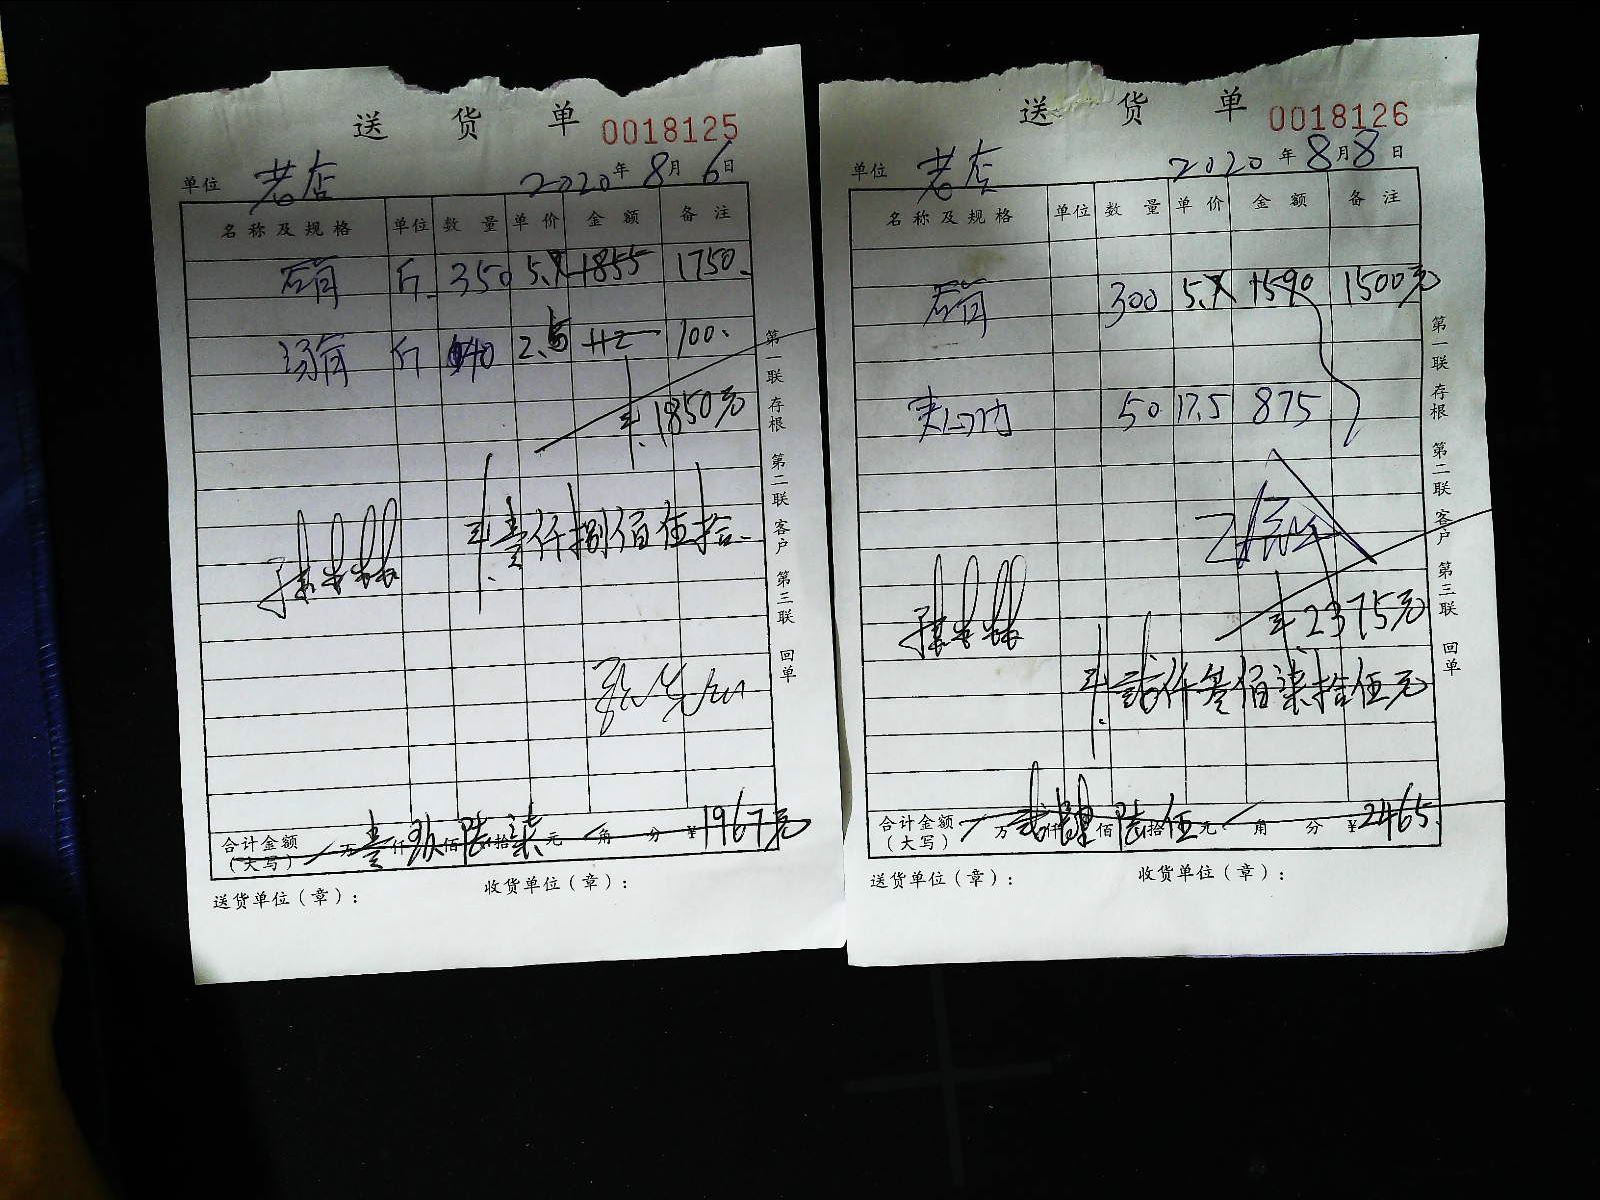 送货单 0018125
单位 老店 2020年8月6日
名称及规格 单位 数量 单价 金额 备注
斤 350 5. 1855 1750.
斤 40 2.5 112 100.
¥1850元
¥壹仟捌佰伍拾
合计金额(大写) 万壹仟玖佰陆拾柒元 角 分 ¥1967元
送货单位(章): 收货单位(章):
第一联 存根 第二联 客户 第三联 回单
送货单 0018126
单位 老店 2020年8月8日
名称及规格 单位 数量 单价 金额 备注
300 5. 1590 1500元
50 17.5 875
¥2375元
¥贰仟叁佰柒拾伍元
合计金额(大写) 万贰仟肆佰陆拾伍元 角 分 ¥2465.
送货单位(章): 收货单位(章):
第一联 存根 第二联 客户 第三联 回单